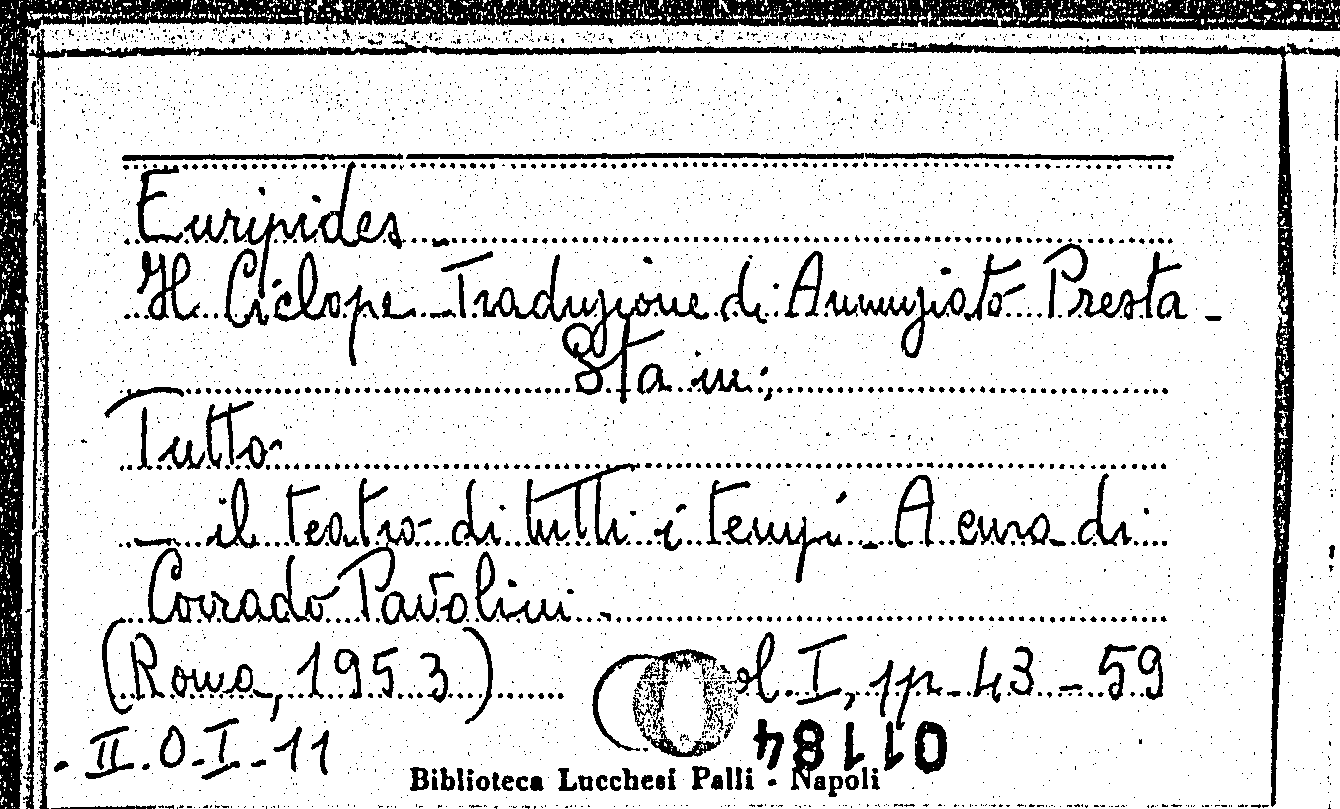 Euripides -
Il Ciclope - Traduzione di Annunziato Presta -
Sta in:
Tutto
- il teatro di tutti i tempi - A cura di
Corrado Pavolini -
(Roma, 1953) ol. I, pp. 43 - 59
- II. O. I. - 11
01184
Biblioteca Lucchesi Palli - Napoli